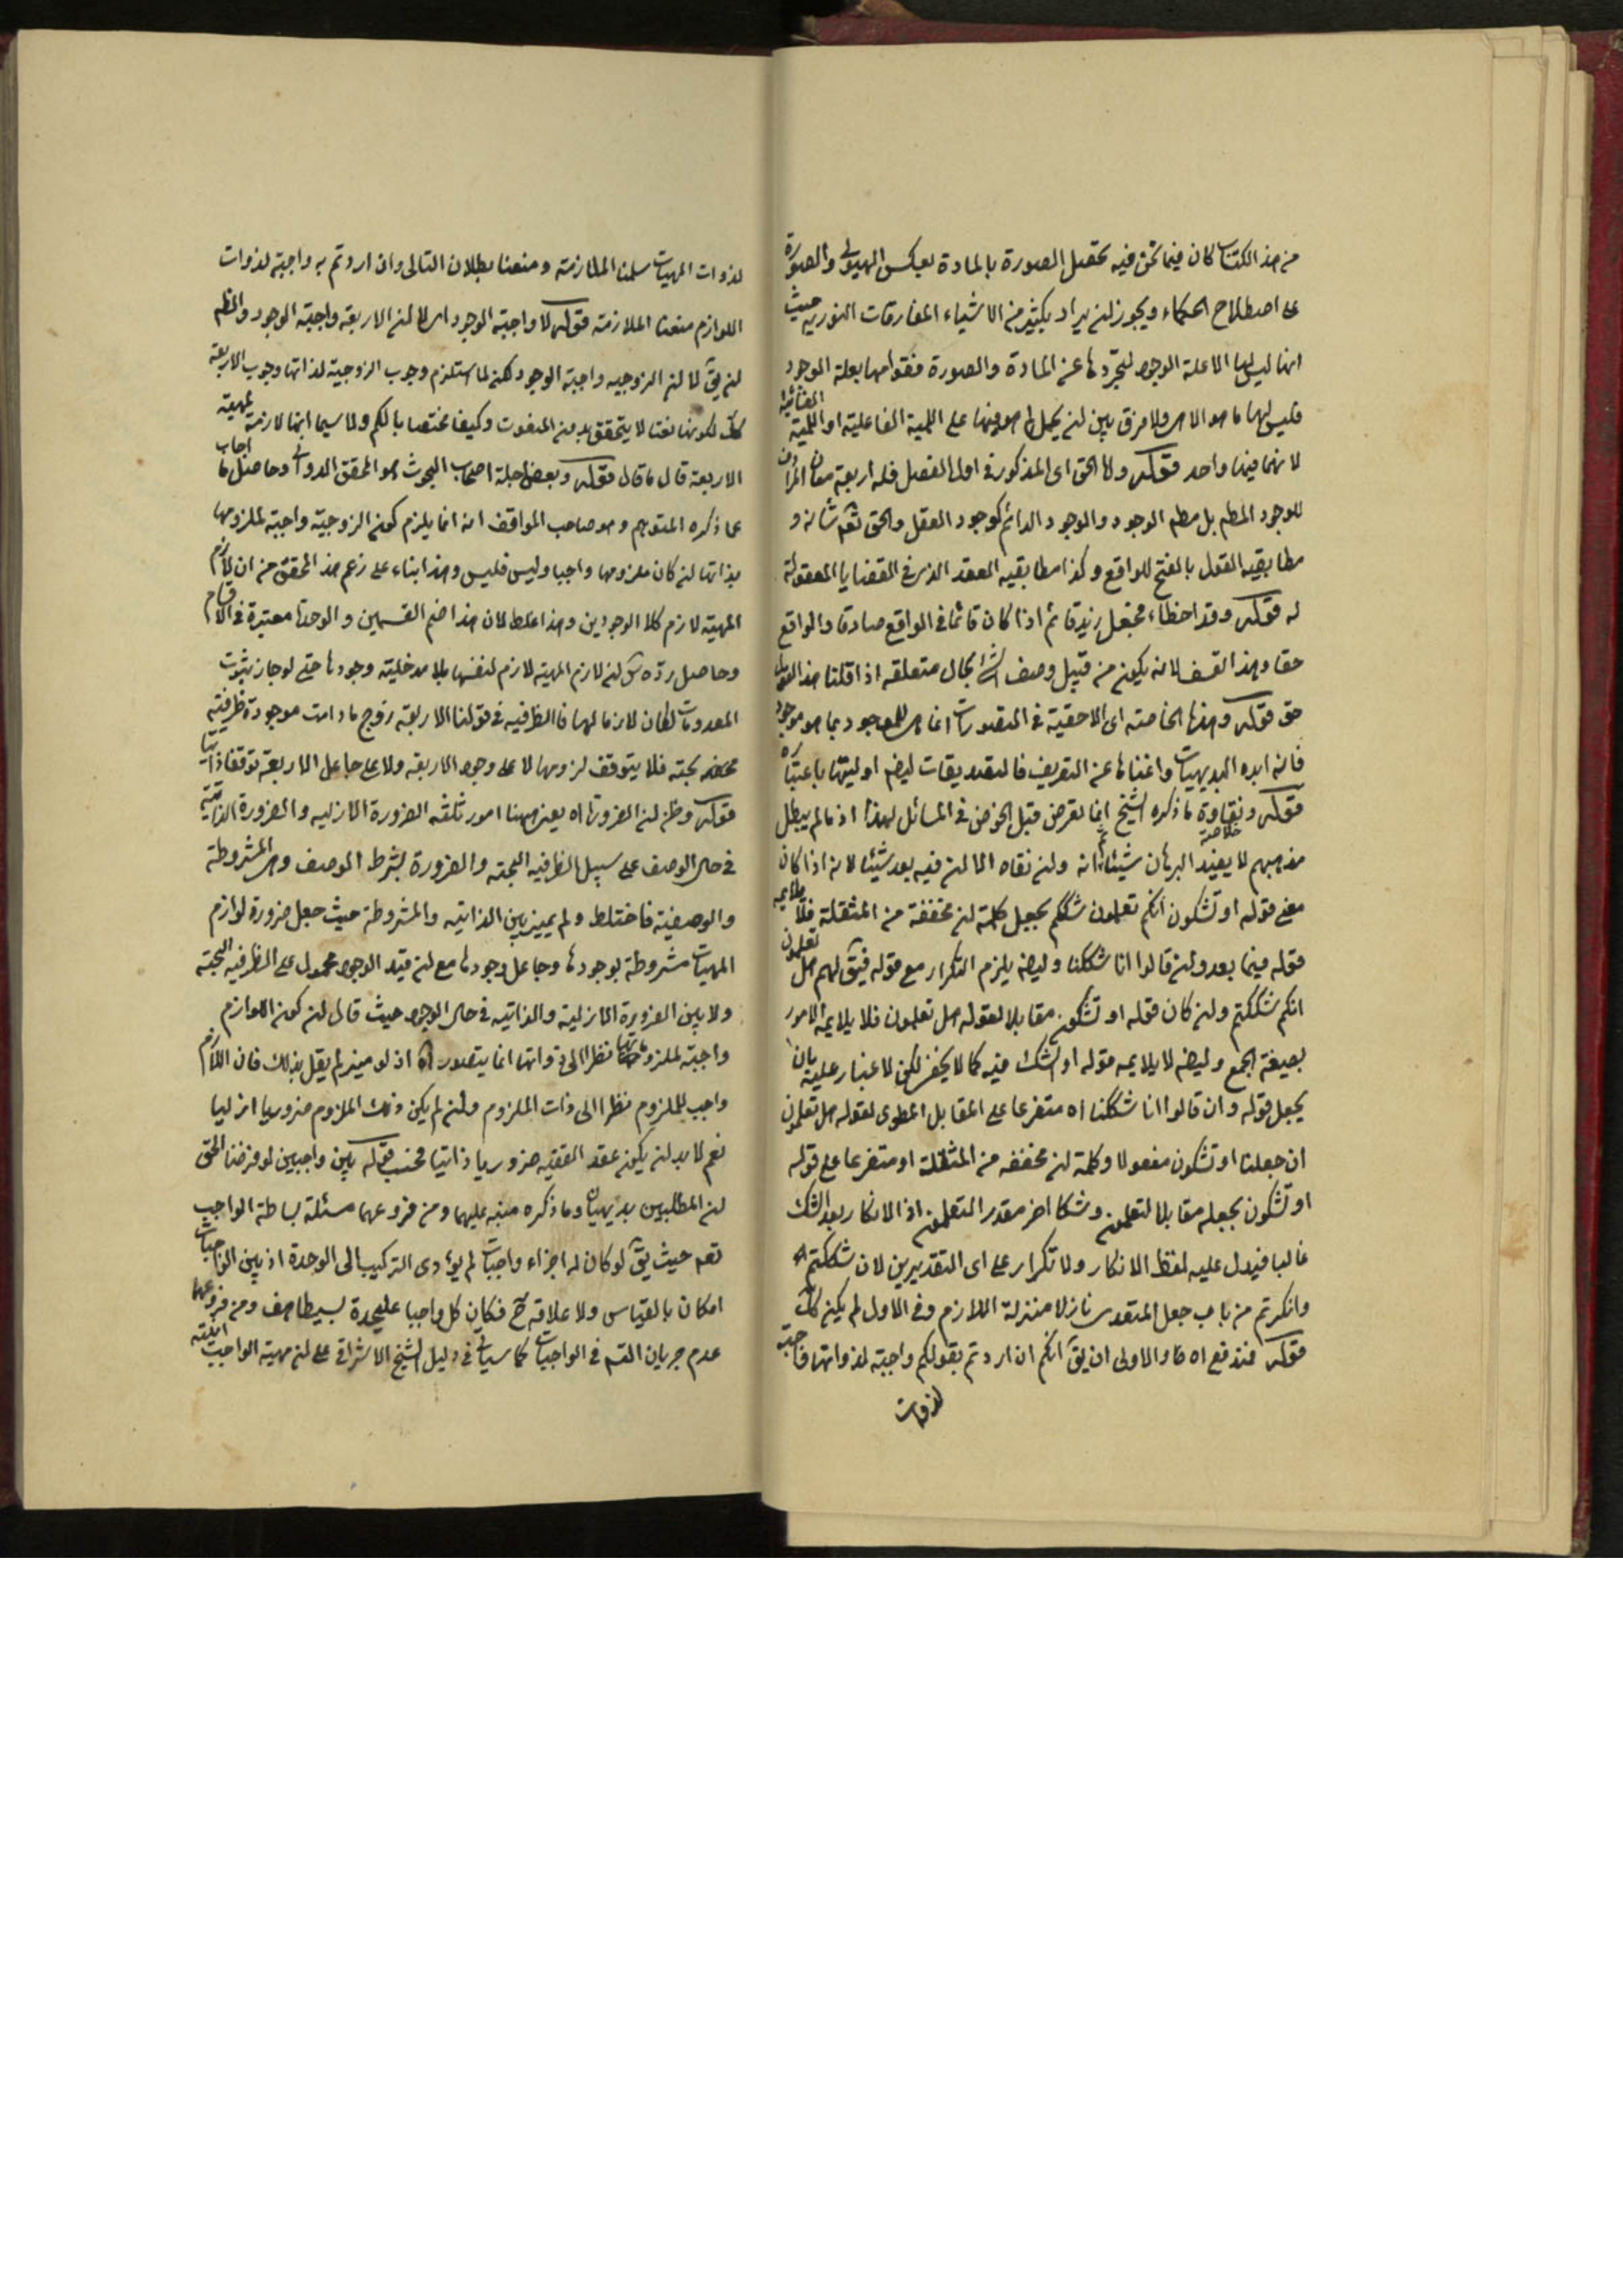 من هذا الكتاب كان فيما نحن فيه تحصل الصورة بالمادة بعكس الهيولى والصورة
على اصطلاح الحكماء ويجوز ان يراد بكثير من الاشياء المفارقات النورية حيث
انها ليس لها الا علة الوجود لتجردها عن المادة والصورة فقوامها بعلة الوجود
فليس لها ما هو الا هى ولا فرق بين ان يحمل ما هو فيها على اللمية الفاعلية او اللمية الغائية
لانهما فيها واحد قوله واما الحق اى المذكور فى اول الفصل فله اربعة معان المرادف
للوجود المطلق بل مطلق الوجود والموجود الدائم كوجود العقل والحق تعم شانه و
مطابقيه القول بالفتح للواقع وكذا مطابقيه العقد الذى فى القضايا المعقولة
له قوله وقد اخطاء من جعل زيد قائم اذا كان قائما فى الواقع صادقا والواقع
حقا وهذا لانه يكون من قبيل وصف الشئ بحال متعلقه اذا قلنا هذا القول
حق قوله وهذه الخاصة اى الاحقية فى التصورات انما هى للموجود بما هو موجود
فانه ابده البديهيات واغناها عن التعريف فالتصديقات ايضا اوليتها باعتباره
قوله ونقاوة خلاصة ما ذكره الشيخ انما تعرض قبل الخوض فى المسائل لهذا اذ ما لم يبطل
مذهبهم لا يفيد البرهان شيئا انه وان نقاه الا ان فيه بعد شيئا لانه اذا كان
معنى قوله او تشكون انكم تعلمون شككم بجعل كلمة ان مخففة من المثقلة فلا يلايمه
قوله فيما بعد وان قالوا انا شككنا وايضا يلزم التكرار مع قوله فيق لهم هل تعلمون
انكم شككتم وان كان قوله او تشكون مقابلا لقوله هل تعلمون فلا يلايمه الامور
بصيغة الجمع وايضا لا يلايمه قوله او الشك فيه كما لا يخفى لكن لا غبار عليه بان
يجعل قوله وان قالوا انا شككنا اه متفرعا على المقابل المطوى لقوله هل تعلمون
ان جعلنا او تشكون مفعولا وكلمة ان مخففه من المثقلة او متفرعا على قوله
او تشكون بجعله مقابلا لتعلمون وشكا اخر مقدر التعلمون اذ الانكار بعد الشك
غالبا فيدل عليه لفظ الانكار ولا تكرار على اى التقديرين لان شككتم اه
وانكرتم من باب جعل المتعدى نازلا منزلة اللازم وفى الاول لم يكن كك
قوله فتندفع اه والاولى ان يق انكم ان اردتم بقولكم واجبة لذواتها واجبة
لذوات
لذوات المهيات سلمنا الملازمة ومنعنا بطلان التالى وان اردتم به واجبة لذوات
اللوازم منعنا الملازمة قوله لا واجبة الوجود اى لا ان الاربعة واجبة الوجود والظاهر
ان يق لا ان الزوجيه واجبة الوجود لكن لما استلزم وجوب الزوجية لذاتها وجوب الاربعة
كك لكونها نعتا لا يتحقق بدون المنعوت وكيفا مختصا بالكم ولا سيما انها لازمة لمهية
الاربعة قال ما قال قوله وبعض اجلة اصحاب البحوث هو المحقق الدوانى وحاصل ما اجاب
عما ذكره المتوهم وهو صاحب المواقف انه انما يلزم كون الزوجية واجبة لملزومها
بذاتها ان كان ملزومها واجبا وليس فليس وهذا بناء على زعم هذا المحقق من ان لازم
المهية لازم كلا الوجودين وهذا غلط لان هذا ضم القسمين والوحدة معتبرة فى الاقسام
وحاصل رده ان لازم المهية لازم لنفسها بلا مدخلية وجودها حتى لو جاز ثبوت
المعدومات لكان لازما لها فالظرفيه فى قولنا الاربعة زوج ما دامت موجودة ظرفية
محضه بحته فلا يتوقف لزومها لا على وجود الاربعة ولا على جاعل الاربعة توقفا ذاتيا
قوله وظن ان الضرورة اه يعنى ههنا امور ثلثه الضرورة الازليه والضرورة الذاتية
فى حال الوصف على سبيل الظرفيه البحته والضرورة بشرط الوصف وهى المشروطة
والوصفية فاختلط ولم يميز بين الذاتيه والمشروطة حيث جعل ضرورة لوازم
المهيات مشروطة بوجودها وجاعل وجودها مع ان قيد الوجود محمول على الظرفيه البحته
ولا بين الضرورة الازلية والذاتيه فى حال الوجود حيث قال ان كون اللوازم
واجبة لملزوماتها نظرا الى ذواتها انما يتصور اه اذ لو ميز لم يقل بذلك فان اللازم
واجب للملزوم نظرا الى ذات الملزوم وان لم يكن ذلك الملزوم ضروريا ازليا
نعم لا بد ان يكون عقد القضيه ضروريا ذاتيا فحسب قوله بين واجبين لو فرضنا الحق
ان المطلبين بديهيان وما ذكره منبه عليهما ومن فروعهما مسئلة بساطة الواجب
تعم حيث يق لو كان له اجزاء واجبات لم يؤدى التركيب الى الوحدة اذ بين الواجبات
امكان بالقياس ولا علاقه ح فكان كل واجبا عليحدة بسيطا هف ومن فروعهما
عدم جريان القسم فى الواجبات كما سياتى فى دليل الشيخ الاشراقى على ان مهية الواجب انيته